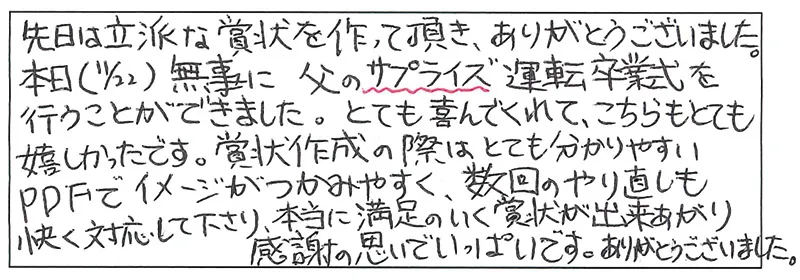 先日は立派な賞状を作って頂き、ありがとうございました。
本日(11/22)無事に 父のサプライズ運転卒業式を
行うことができました。とても喜んでくれて、こちらもとても
嬉しかったです。賞状作成の際はとても分かりやすい
PDFでイメージがつかみやすく、数回のやり直しも
快く対応して下さり、本当に満足のいく賞状が出来あがり
感謝の思いでいっぱいです。ありがとうございました。